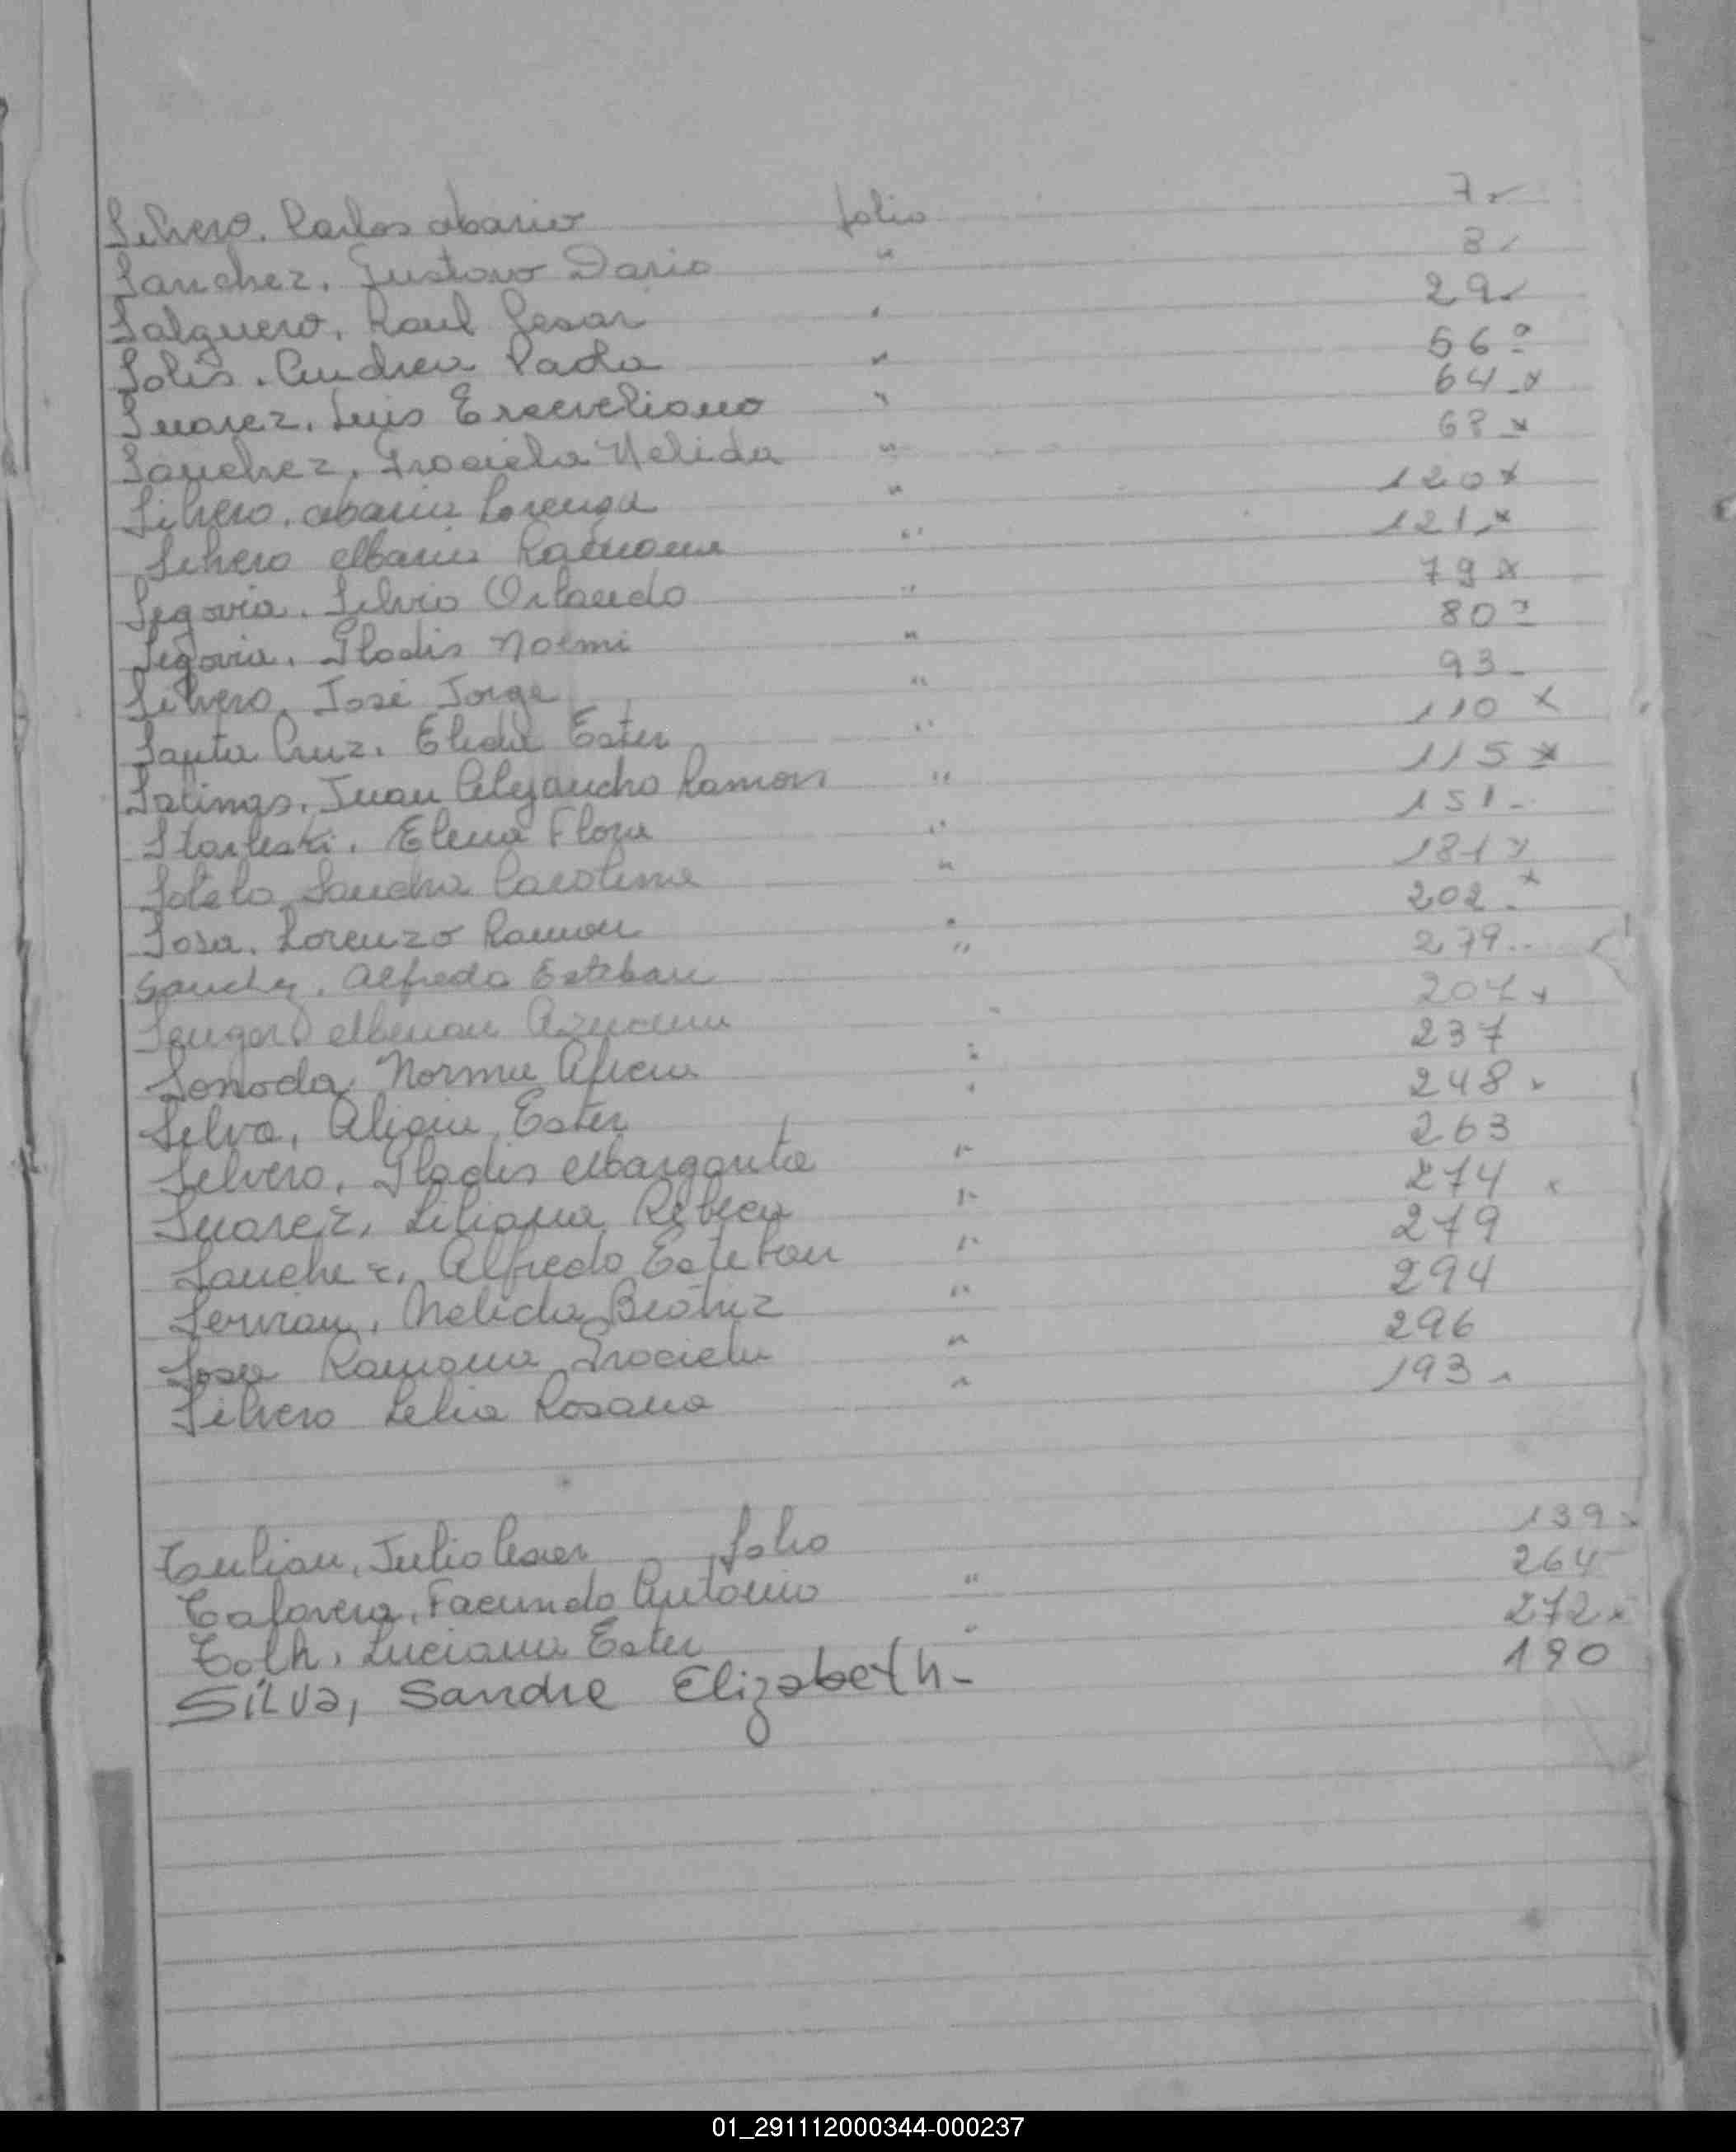 Silvero. Carlos Mario folio 7
Sanchez. Gustavo Dario " 8
Salguero. Raul Cesar " 29
Solis. Andrea Paola " 56
Suarez. Luis " 64
Sanchez. Graciela Nelida " 68
Silvero. Maria Lorenza " 120
Silvero Maria Ramona " 121
Segovia. Silvio Orlando " 79
Segovia. Gladis Noemi " 80
Silvero. José Jorge " 93
Santa Cruz. Elida Ester " 110
Salinas. Juan Alejandro Ramon " 115
Elena Flora " 151
Sotelo Sandra Carolina " 181
Sosa. Lorenzo Ramon " 202
Sanchez. Alfredo Esteban " 279
Azucena " 204
Sonoda Norma Alicia " 237
Silva, Alicia Ester " 248
Silvero, Gladis Margarita " 263
Suarez, Liliana Rebeca " 274
Sanchez, Alfredo Esteban " 279
Servian, Nelida Beatriz " 294
Sosa Ramona Graciela " 296
Silvero Lelia Rosana " 193
Tulian, Julio Cesar folio 139
Talavera, Facundo Antonio " 264
Luciana Ester " 272
Silva, Sandra Elizabeth - 190
01_291112000344-000237